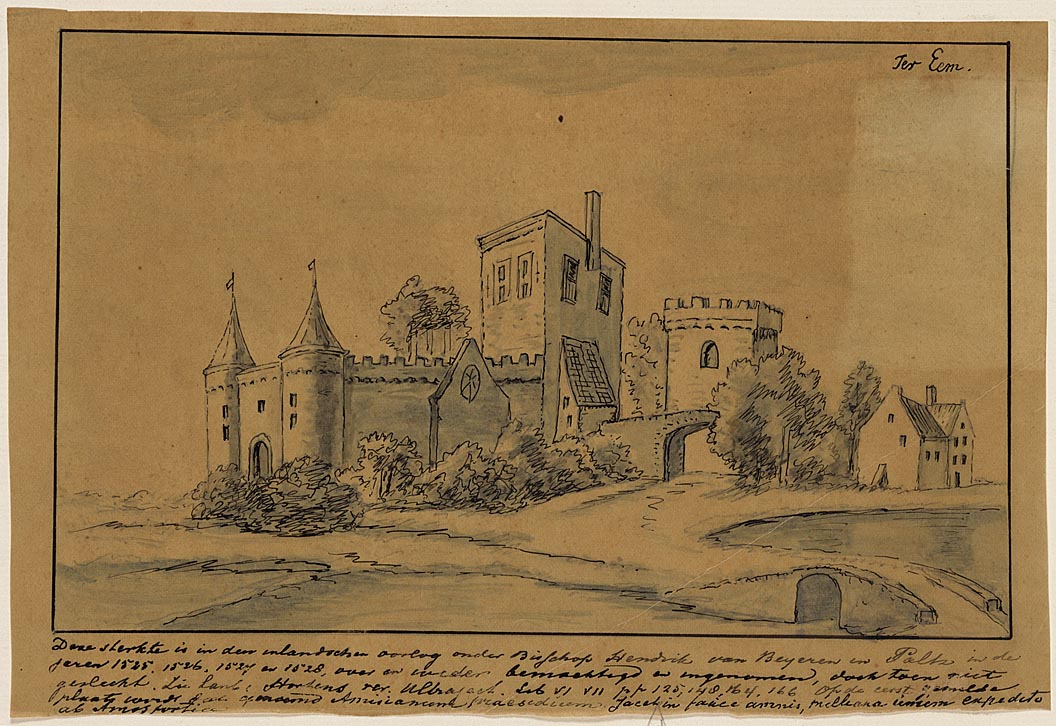 Ter Eem.
Deze sterkte is in den inlandschen oorlog onder Bisschop Hendrik van Beyeren en Paltz in de
jaren 1525, 1526, 1527 en 1528, over en weder bemachtigd en ingenomen, doch toen niet
geslecht. Zie Lamb. Hortens. rer. Ultraject. Lib VI VII pp 125, 148, 164, 166 Op de eerst gemelde
plaats wordt genaamd praesidium. Jacet in fauce amnis, expedito
ab Amosfortia